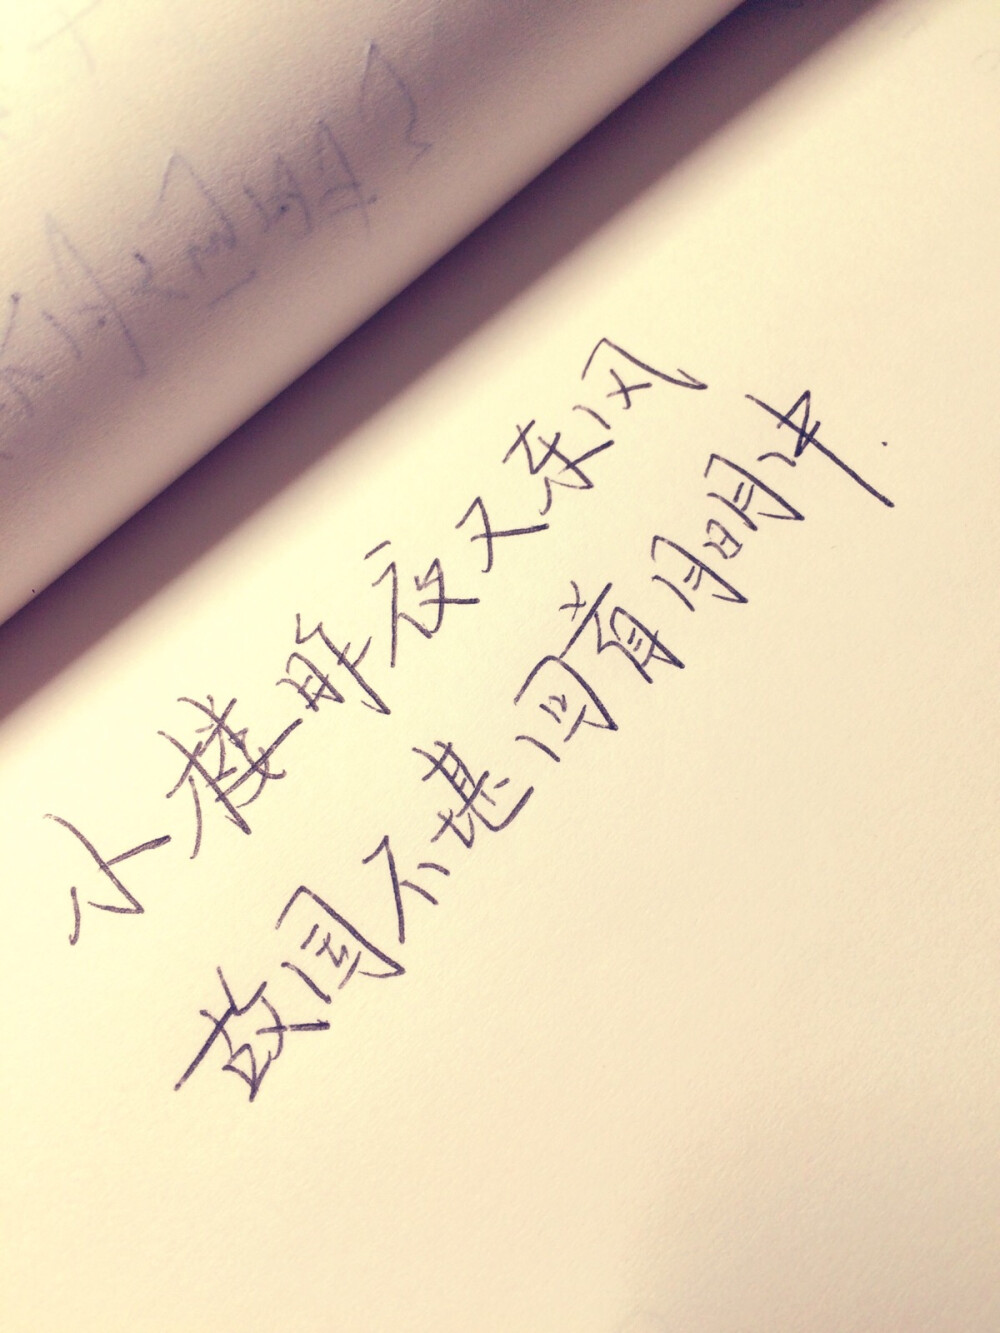 小楼昨夜又东风
故国不堪回首月明中.